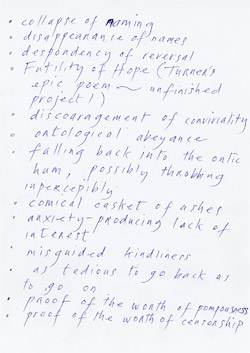 • collapse of naming
• disappearance of names
• despondency of reversal
• Futility of Hope (Turner's
epic poem ~ unfinished
project!)
• discouragement of conviviality
• ontological abeyance
• falling back into the ontic
hum, possibly throbbing
impercepibly
• comical casket of ashes
• anxiety-producing lack of
interest
• misguided kindliness
• as tedious to go back as
to go on
• proof of the worth of pompousness
• proof of the worth of censorship